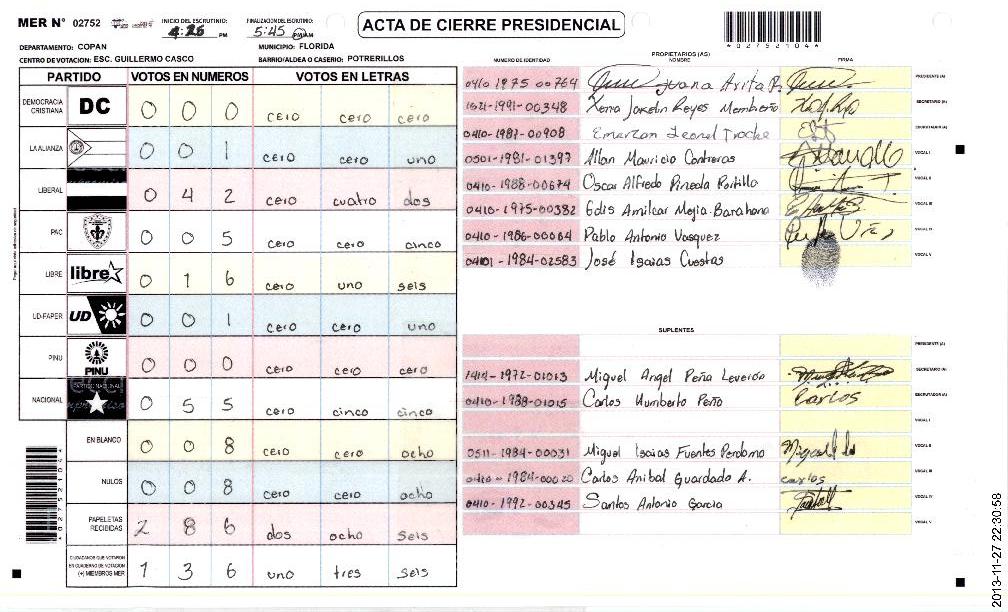 MER N° 02752
INICIO DEL ESCRUTINIO: 4:26 PM
FINALIZACIÓN DEL ESCRUTINIO: 5:45
ACTA DE CIERRE PRESIDENCIAL
*02752104*
DEPARTAMENTO: COPAN
MUNICIPIO: FLORIDA
CENTRO DE VOTACION: ESC. GUILLERMO CASCO
BARRIO/ALDEA O CASERIO: POTRERILLOS
PARTIDO VOTOS EN NUMEROS VOTOS EN LETRAS
DEMOCRACIA CRISTIANA DC 0 0 0 cero cero cero
LA ALIANZA 0 0 1 cero cero uno
LIBERAL 0 4 2 cero cuatro dos
PAC 0 0 5 cero cero cinco
LIBRE libre 0 1 6 cero uno seis
UD-FAPER UD 0 0 1 cero cero uno
PINU PINU 0 0 0 cero cero cero
NACIONAL PARTIDO NACIONAL 0 5 5 cero cinco cinco
EN BLANCO 0 0 8 cero cero ocho
NULOS 0 0 8 cero cero ocho
PAPELETAS RECIBIDAS 2 8 6 dos ocho seis
CIUDADANOS QUE VOTARON EN CUADERNO DE VOTACION (+) MIEMBROS MER 1 3 6 uno tres seis
*02752104*
PROPIETARIOS (AS)
NUMERO DE IDENTIDAD NOMBRE FIRMA
0410 1975 00764 Juana Avita P. PRESIDENTE (A)
1621-1991-00348 Xenia Jakelin Reyes Membreño SECRETARIO (A)
0410-1987-00908 Emerzon Leonel Troche ESCRUTADOR (A)
0501-1981-01397 Allan Mauricio Contreras VOCAL I
0410-1988-00674 Oscar Alfredo Pineda Portillo VOCAL II
0410-1975-00382 Edis Amilcar Mejia Barahona VOCAL III
0410-1986-00064 Pablo Antonio Vasquez VOCAL IV
04101-1984-02583 José Isaias Cuestas VOCAL V
SUPLENTES
PRESIDENTE (A)
1414-1972-01013 Miguel Angel Peña Leverón SECRETARIO (A)
0410-1988-01015 Carlos Humberto Peño Carlos ESCRUTADOR (A)
VOCAL I
0511-1984-00031 Miguel Isaias Fuentes Perdomo VOCAL II
0410-1984-00020 Carlos Anibal Guardado A. carlos VOCAL III
0410-1992-00345 Santos Antonio Garcia VOCAL IV
VOCAL V
2013-11-27 22:30:58